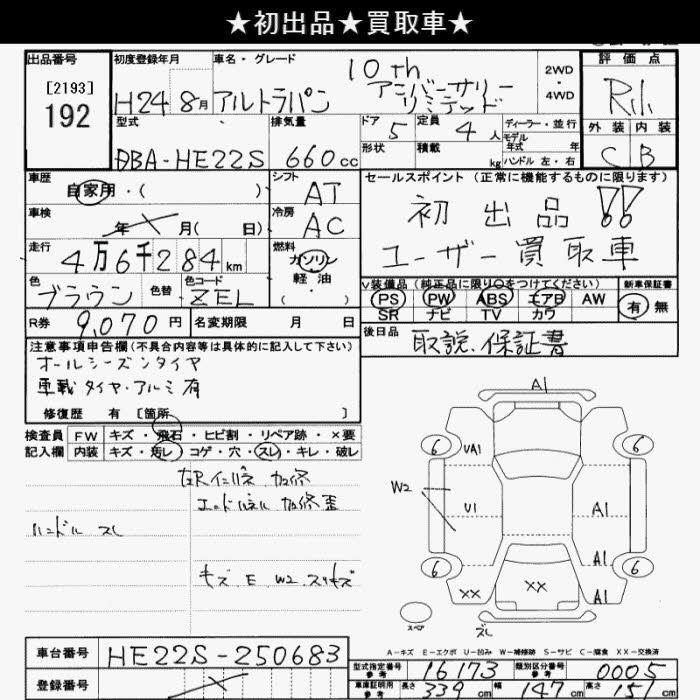 ★初出品★買取車★
出品番号 初度登録年月 車名・グレード 10th 2WD・4WD 評価点
[2193]
192
H24 8月 アルトラパン アニバーサリーリミテッド R1.
型式 排気量 ドア 定員 ディーラー・並行 外装 内装
DBA-HE22S 660cc 5 4人 モデル年式 年 C B
形状 積載 kg ハンドル 左・右
車歴 シフト セールスポイント(正常に機能するものに限ります)
自家用・( ) AT 初出品!!
車検 冷房
年 月( 日) AC ユーザー買取車
走行 燃料
4万6千284km ガソリン
軽油
( )
色 色替 色コード V装備品(純正品に限り○をつけてください) 新車保証書
ブラウン ZEL PS PW ABS エアB AW 有 無
SR ナビ TV カワ
R券 9,070円 名変期限 月 日 後日品
取説、保証書
注意事項申告欄(不具合内容等は具体的に記入して下さい)
オールシーズンタイヤ
車載タイヤ・アルミ有
修復歴 有 [箇所 ]
検査員 FW キズ・飛石・ヒビ割・リペア跡・×要
記入欄 内装 キズ・汚レ・コゲ・穴・スレ・キレ・破レ
加修
加修歪
ハンドル スレ
キズ E W2 スリキズ
A1
6 VA1 6
W2 V1 A1
A1
6 XX XX A1 6
スペア
スレ
A-キズ E-エクボ U-凹み W-補修跡 S-サビ C-腐食 XX-交換済
車台番号 HE22S-250683
登録番号
型式指定番号参考 16173 類別区分番号参考 0005
車庫証明用参考 長さ 339cm 幅 147cm 高さ 151cm